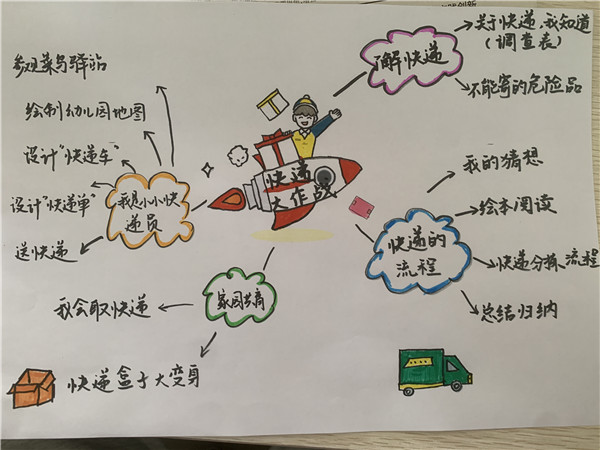 快递
大作战
了解快递
关于快递,我知道
(调查表)
不能寄的危险品
快递的
流程
我的猜想
绘本阅读
快递分拣流程
总结归纳
家园共育
我会取快递
快递盒子大变身
我是小小快
递员
参观菜鸟驿站
绘制幼儿园地图
设计“快递车”
设计“快递单”
送快递